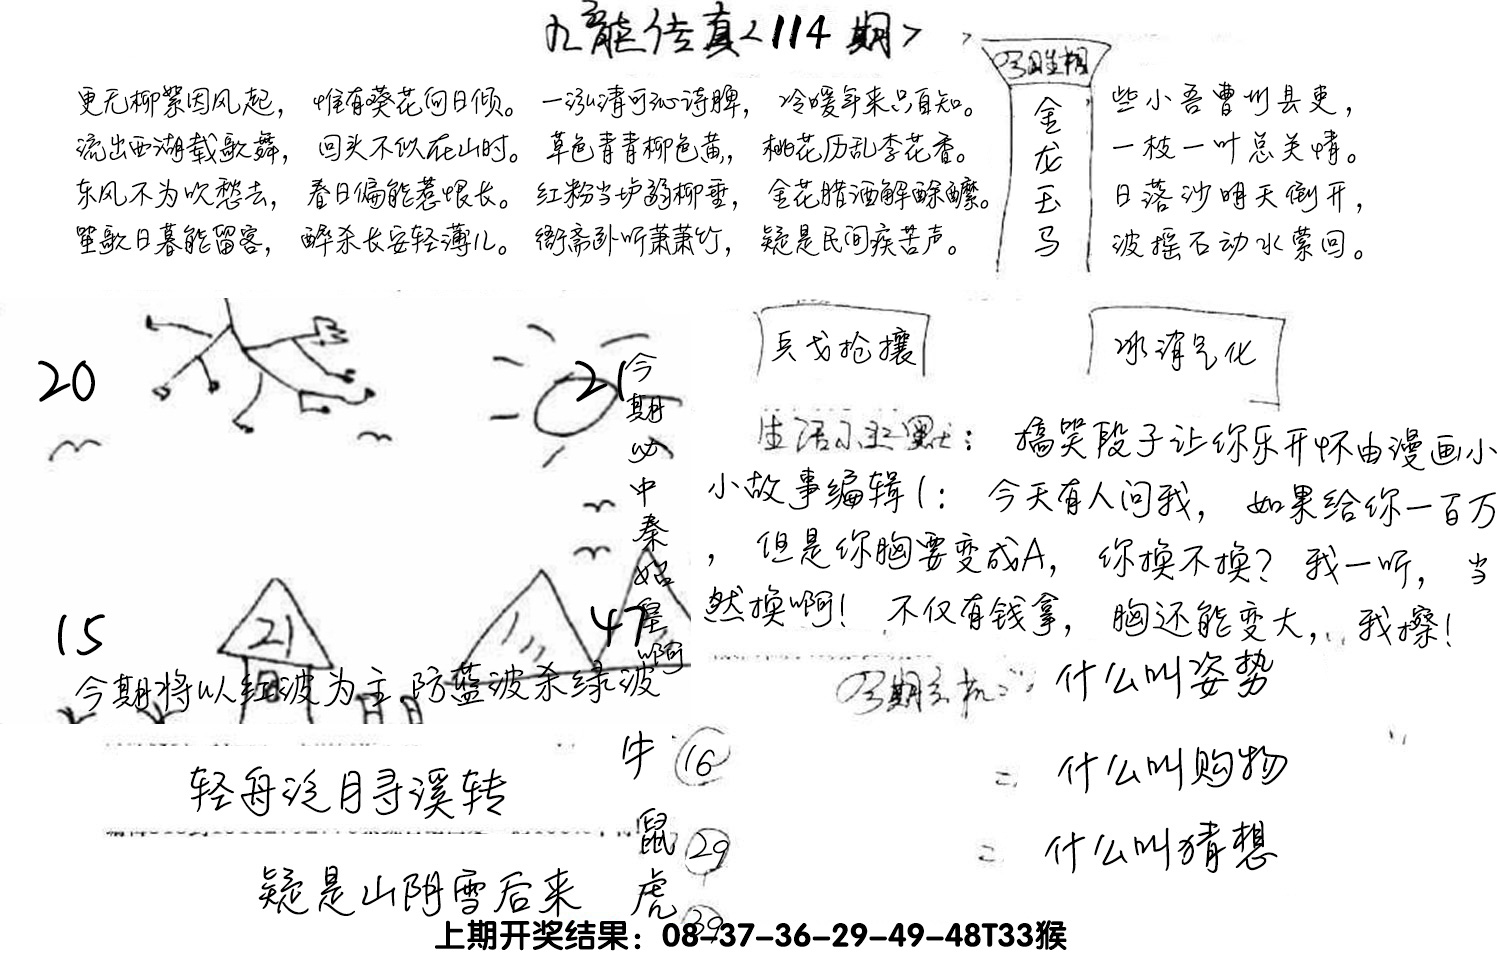 九龙传真<114期>
更无柳絮因风起，惟有葵花向日倾。一泓清可沁诗脾，冷暖年来只自知。
流出西湖载歌舞，回头不似在山时。草色青青柳色黄，桃花历乱李花香。
东风不为吹愁去，春日偏能惹恨长。红粉当垆弱柳垂，金花腊酒解酴醾。
笙歌日暮能留客，醉杀长安轻薄儿。衙斋卧听萧萧竹，疑是民间疾苦声。
金龙玉马
些小吾曹州县吏，
一枝一叶总关情。
日落沙明天倒开，
波摇石动水萦回。
20
21
15
21
47
今期必中秦始皇啊
今期将以红波为主防蓝波杀绿波
兵戈抢攘
冰消气化
生活小幽默：搞笑段子让你乐开怀由漫画小
小故事编辑1：今天有人问我，如果给你一百万
，但是你胸要变成A，你换不换？我一听，当
然换啊！不仅有钱拿，胸还能变大，我擦！
什么叫姿势
= 什么叫购物
= 什么叫猜想
轻舟泛月寻溪转
疑是山阴雪后来
牛 16
鼠 29
虎 39
上期开奖结果：08-37-36-29-49-48T33猴